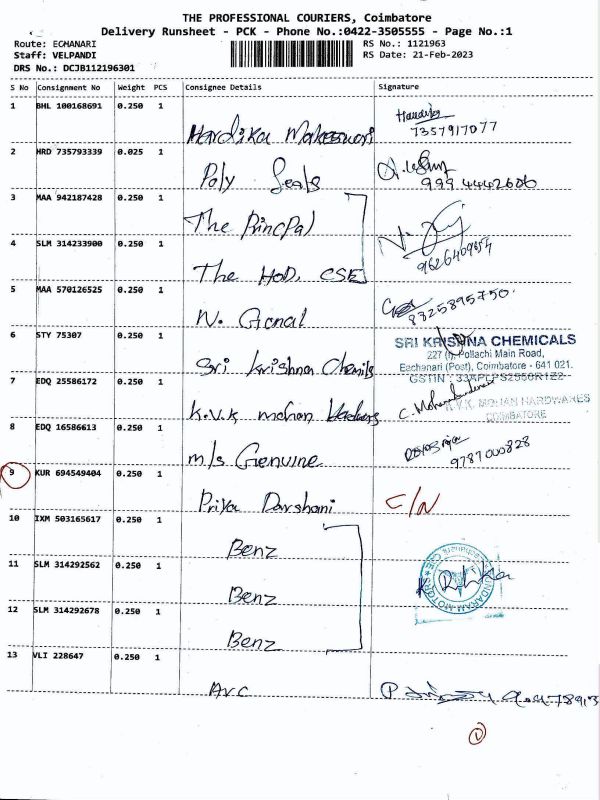 THE PROFESSIONAL COURIERS, Coimbatore
Delivery Runsheet - PCK - Phone No.:0422-3505555 - Page No.:1
Route: ECHANARI
RS No.: 1121963
Staff: VELPANDI
RS Date: 21-Feb-2023
DRS No.: DCJB112196301
S No Consignment No Weight PCS Consignee Details Signature
1 BHL 100168691 0.250 1
Hardika Maheswari
7357917077
2 HRD 735793339 0.025 1
Poly Seals
999 4442606
3 MAA 942187428 0.250 1
The Principal
4 SLM 314233900 0.250 1
The HOD, CSE
9626409854
5 MAA 570126525 0.250 1
N. Gonal
8825895750.
6 STY 75307 0.250 1
Sri Krishna Chemils
SRI KRISHNA CHEMICALS
227 Pollachi Main Road,
Eachanari (Post), Coimbatore - 641 021.
GSTIN :
7 EDQ 25586172 0.250 1
K.V.K mohan
C. Mohan
K.V.K. MOHAN HARDWARES
COIMBATORE
8 EDQ 16586613 0.250 1
m/s Genuine
9787000828
9 KUR 694549404 0.250 1
Priya Darshani
C/N
10 IXM 503165617 0.250 1
Benz
11 SLM 314292562 0.250 1
Benz
12 SLM 314292678 0.250 1
Benz
SUNDARAM MOTORS
13 VLI 228647 0.250 1
Avc
1